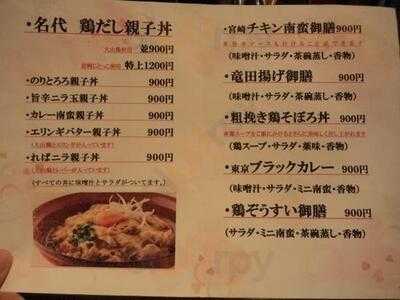 ・名代 鶏だし親子丼
大山鶏使用 並900円
岩崎ビとっこ使用 特上1200円
・のりとろろ親子丼 900円
・旨辛ニラ玉親子丼 900円
・カレー南蛮親子丼 900円
・エリンギバター親子丼 900円
(大山鶏とエリンギが入っています)
・ればニラ親子丼 900円
(大山鶏とレバーが入っています)
(すべての丼に味噌汁とサラダがついてます。)
・宮崎チキン南蛮御膳 900円
(味噌汁・サラダ・茶碗蒸し・香物)
・竜田揚げ御膳 900円
(味噌汁・サラダ・茶碗蒸し・香物)
・粗挽き鶏そぼろ丼 900円
(鶏スープ・サラダ・薬味・香物)
・東京ブラックカレー 900円
(味噌汁・サラダ・ミニ南蛮・香物)
・鶏ぞうすい御膳 900円
(サラダ・ミニ南蛮・茶碗蒸し・香物)